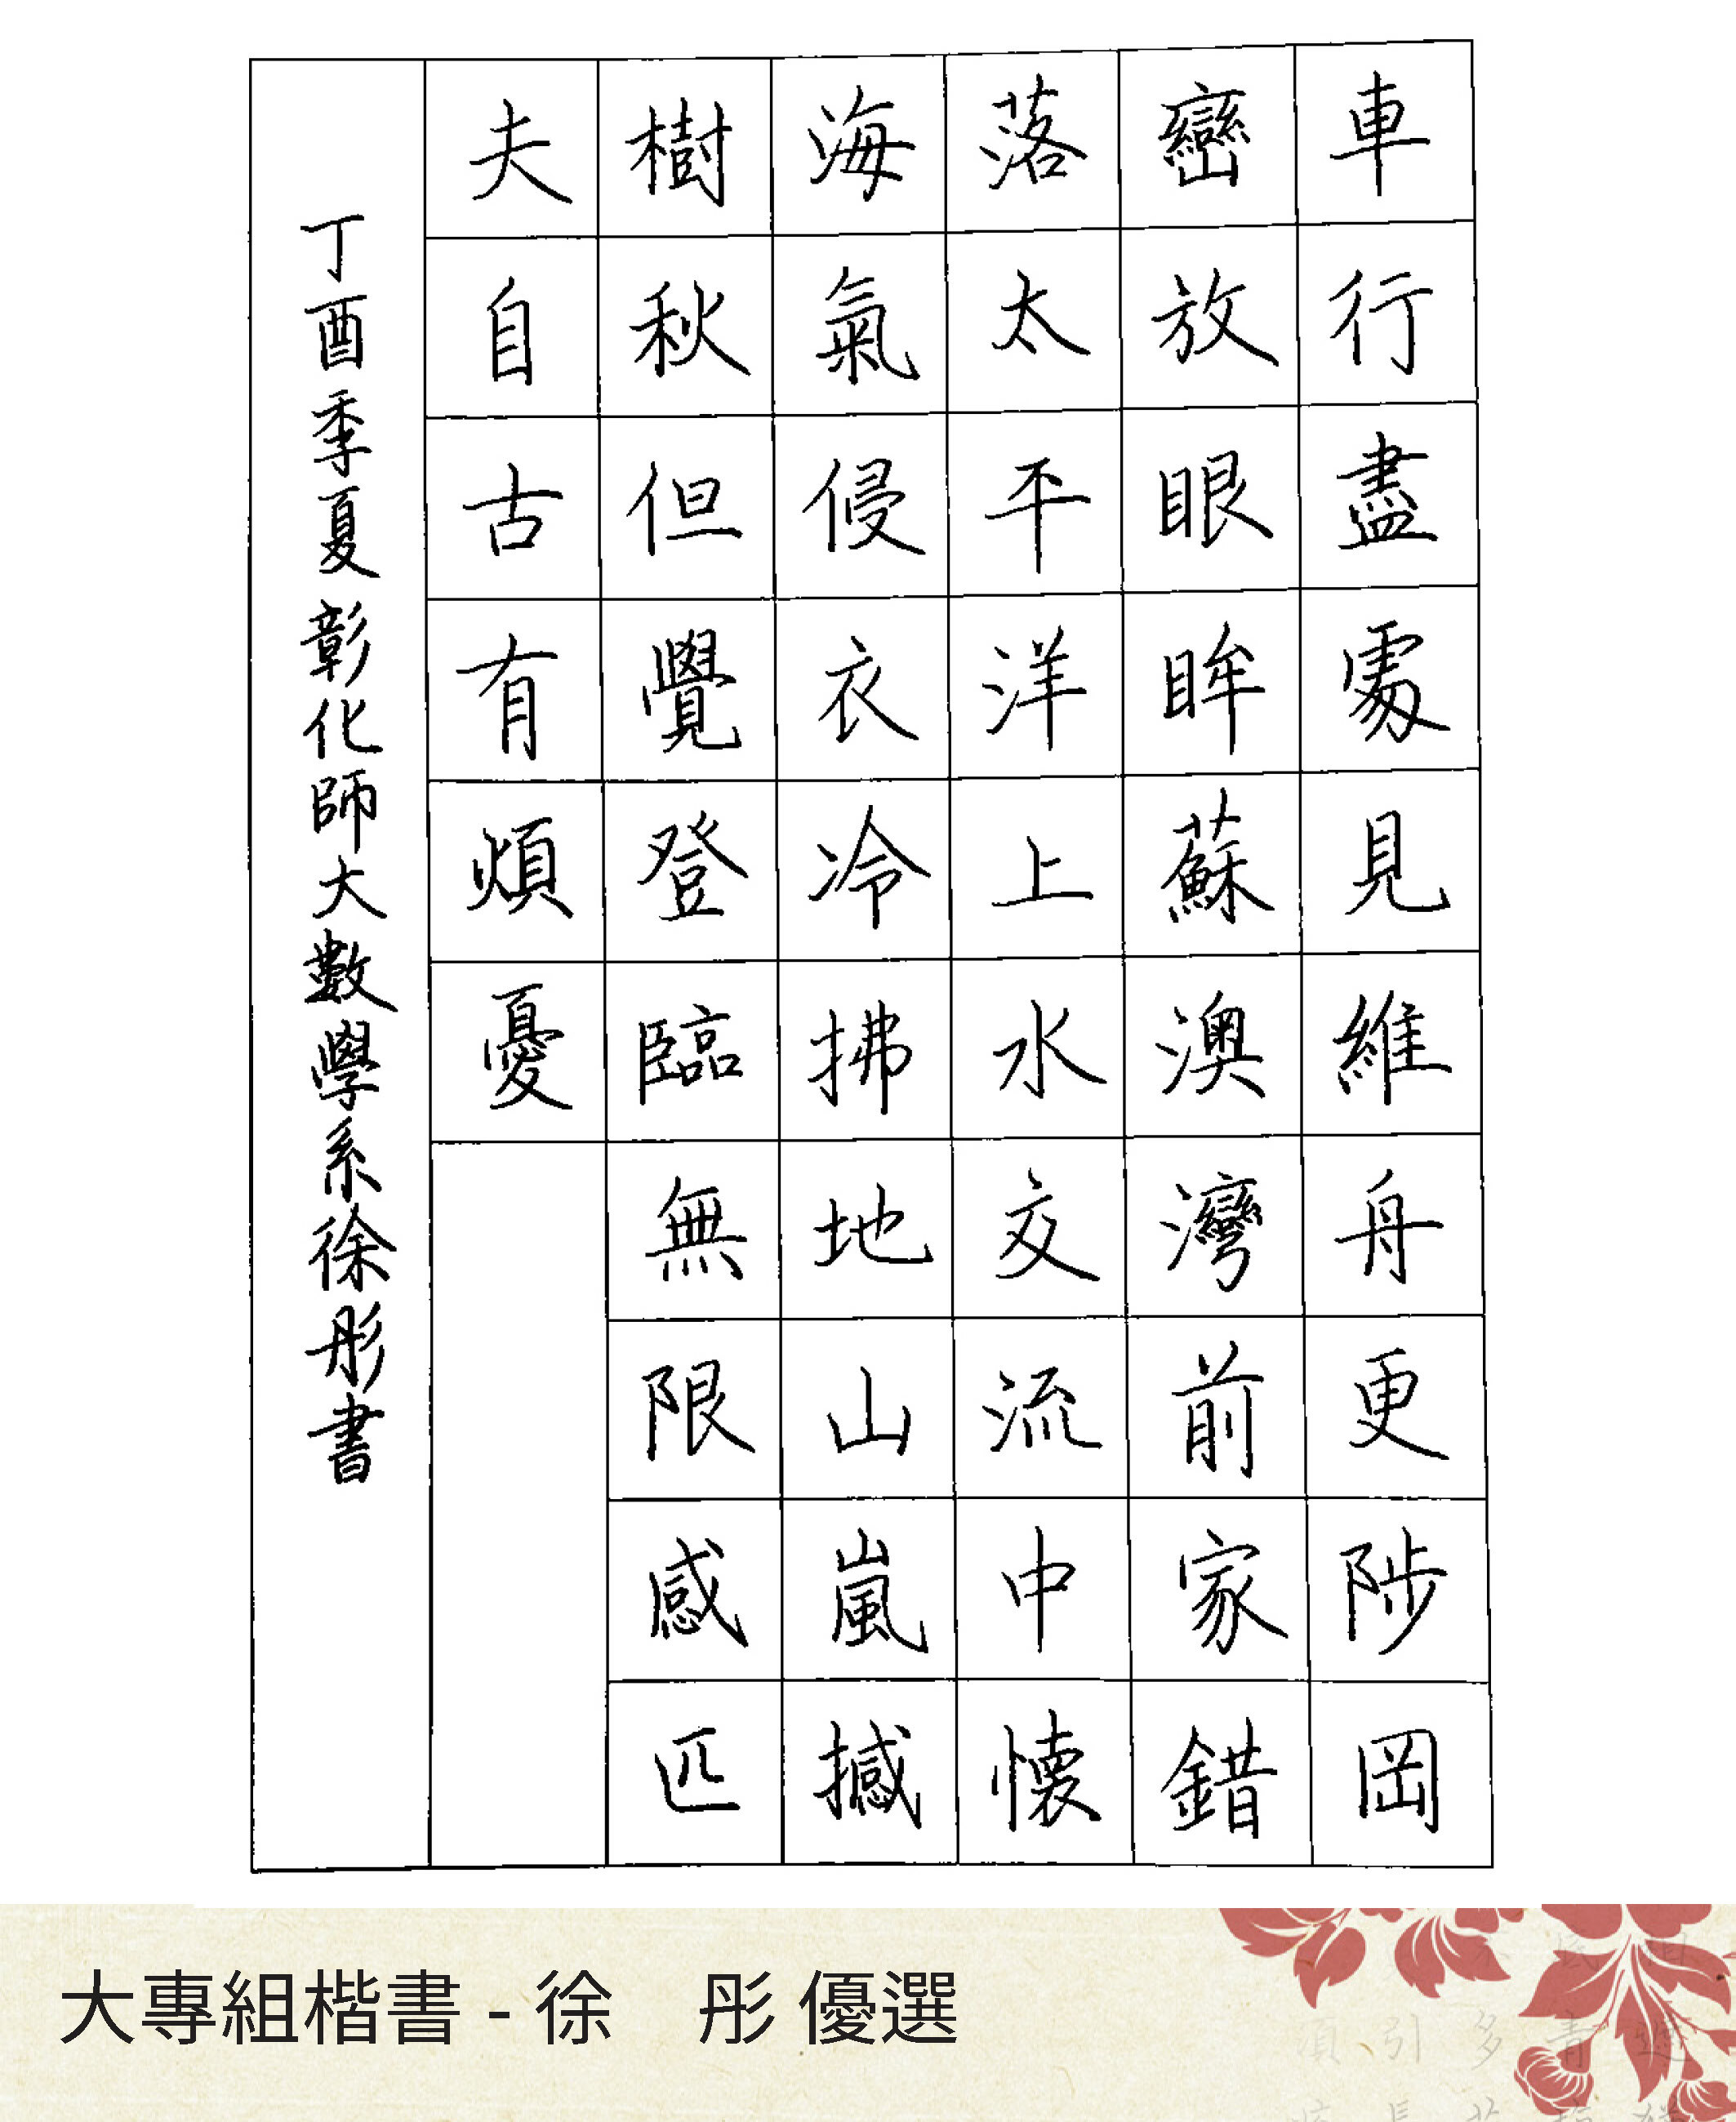 車行盡處見維舟更陟岡
巒放眼眸蘇澳灣前家錯
落太平洋上水交流中懷
海氣侵衣冷拂地山嵐撼
樹秋但覺登臨無限感匹
夫自古有煩憂
丁酉季夏彰化師大數學系徐彤書
大專組楷書 - 徐　彤 優選